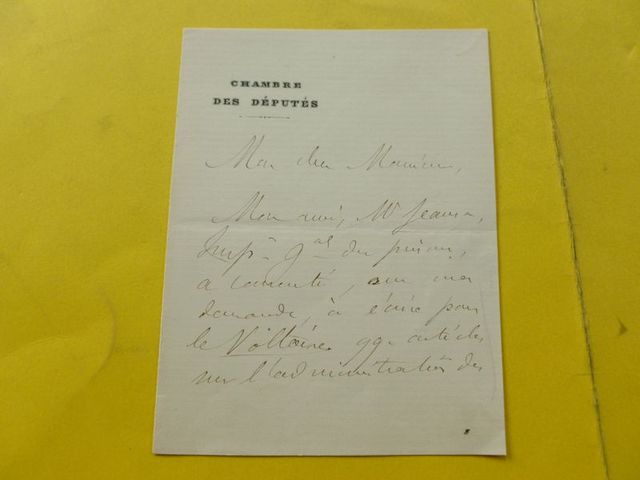 CHAMBRE
DES DÉPUTÉS
Mon cher Monsieur,
Mon ami, Mr
Inspr gal des prisons,
a consenti, sur ma
demande, à écrire pour
le Voltaire qq. articles
sur l'administration des